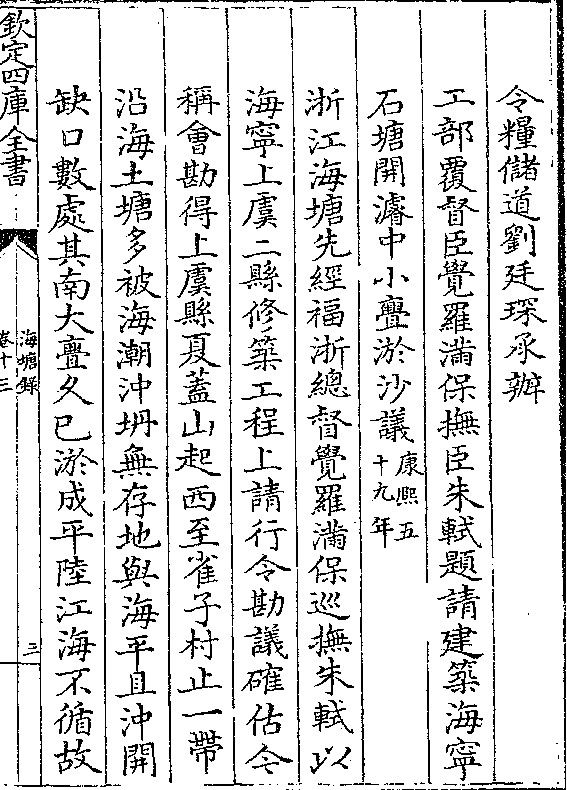 令糧儲道劉廷琛承辦
工部覆督臣覺羅滿保撫臣朱軾題請建築海寧
石塘開濬中小亹淤沙議康熙五十九年
浙江海塘先經福浙總督覺羅滿保巡撫朱軾以
海寧上虞二縣修築工程上請行令勘議確估令
稱會勘得上虞縣夏蓋山起西至雀子村止一帶
沿海土塘多被海潮沖坍無存地與海平且沖開
缺口數處其南大亹久已淤成平陸江海不循故
欽定四庫全書
海塘錄
卷十三
三